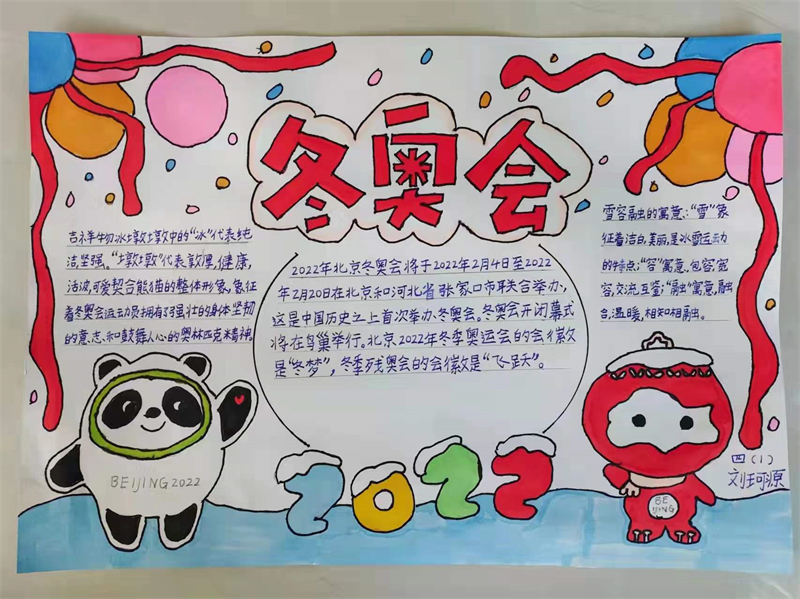 冬奥会
吉祥物冰墩墩中的“冰”代表纯
洁坚强。“墩墩”代表敦厚,健康,
活泼,可爱契合熊猫的整体形象,象征
着冬奥会运动员拥有了强壮的身体坚韧
的意志和鼓舞人心的奥林匹克精神。
2022年北京冬奥会将于2022年2月4日至2022
年2月20日在北京和河北省张家口市联合举办,
这是中国历史之上首次举办冬奥会。冬奥会开闭幕式
将在鸟巢举行。北京2022年冬季奥运会的会徽
是“冬梦”,冬季残奥会的会徽是“飞跃”。
雪容融的寓意:“雪”象
征着洁白,美丽,是冰雪运动
的特点;“容”寓意,包容,宽
容,交流,互鉴;“融”寓意,融
合,温暖,相知相融。
BEIJING 2022
2022
BE
IJING
四(1)
刘珂源